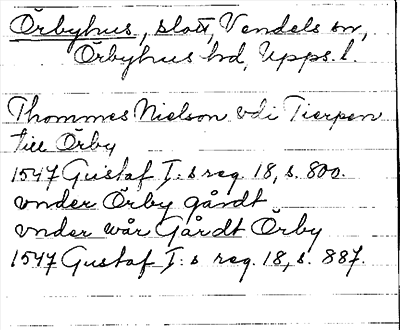 Örbyhus, slott, Vendels sn,
Örbyhus hd, Upps. l.
Thommes Nielson vdi Tierpen
till Örby
1547 Gustaf I:s reg. 18, s. 800.
vnder Örby gårdt
vnder wår Gårdt Örby
1547 Gustaf I:s reg. 18, s. 887.